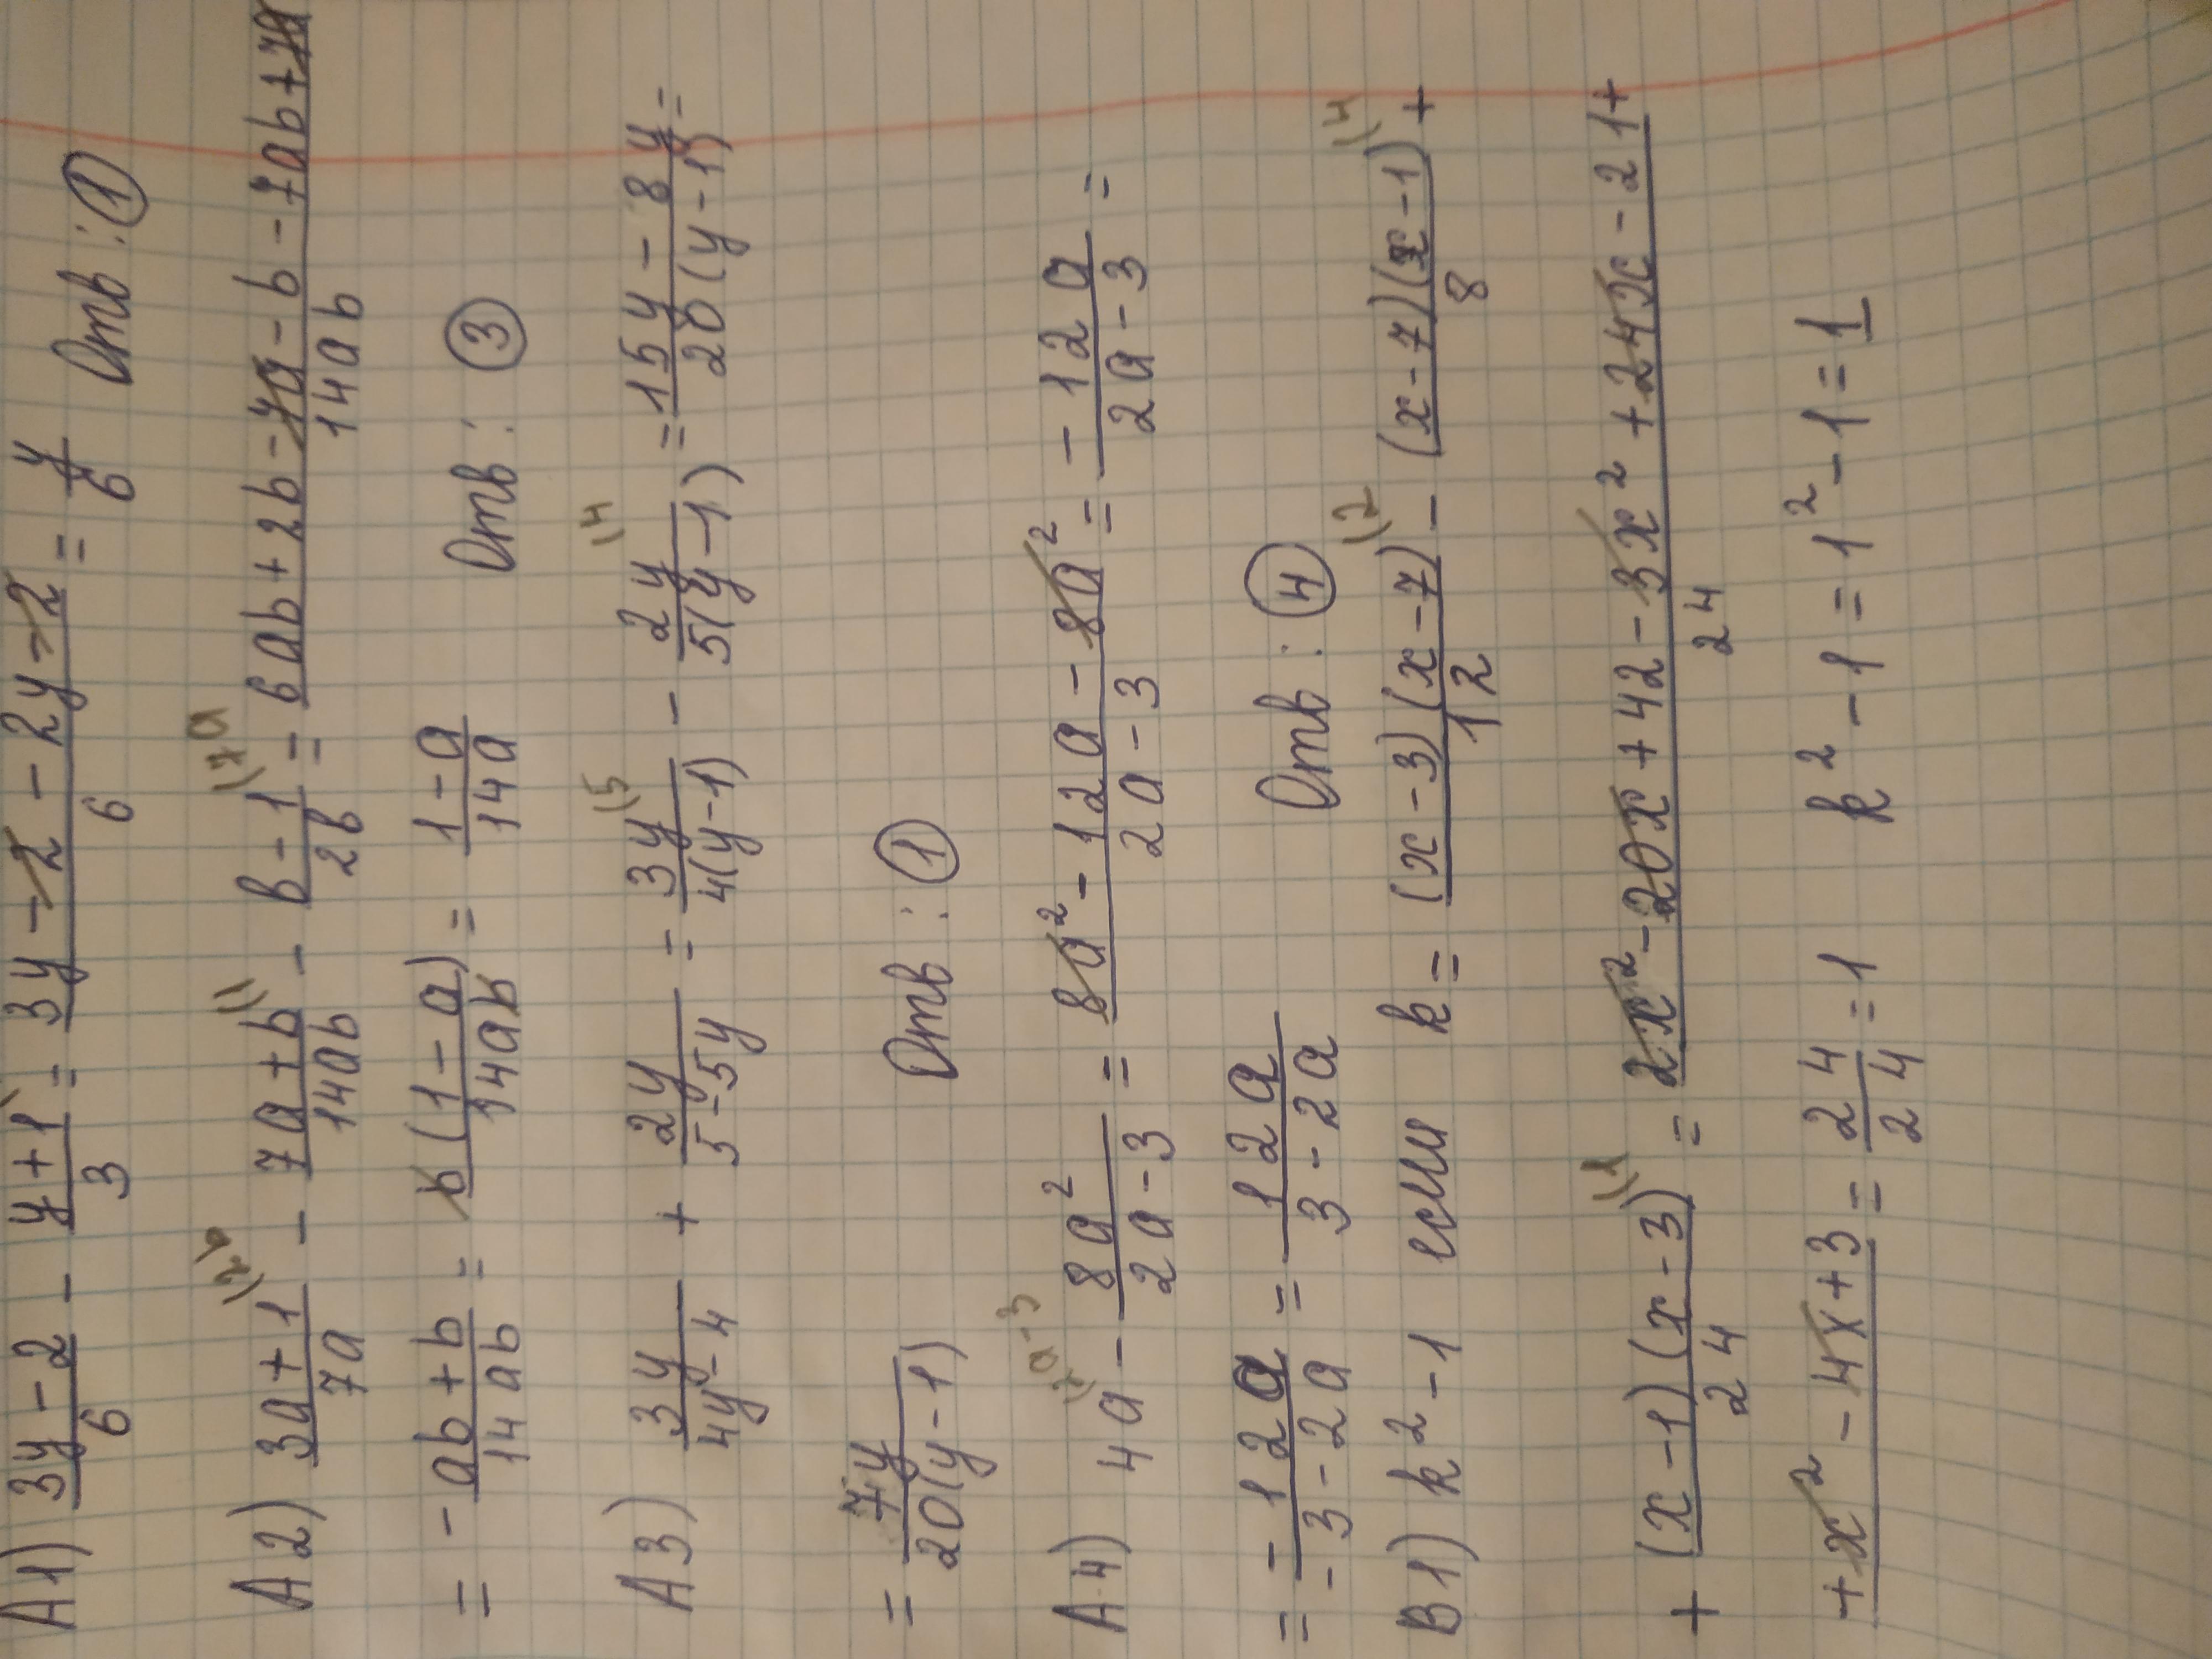 A1) (3y-2)/6 - (y+1)/3 = (3y-2-2y-2)/6 = y/6 Отв: ①
A2) (3a+1)/7a \2b - (7a+b)/14ab \1 - (b-1)/2b \7a = (6ab+2b-7a-b-7ab+7a)/14ab
= (-ab+b)/14ab = b(1-a)/14ab = (1-a)/14a Отв: ③
A3) 3y/(4y-4) + 2y/(5-5y) = 3y/4(y-1) \5 - 2y/5(y-1) \4 = (15y-8y)/20(y-1) =
= 7y/20(y-1) Отв: ①
A4) 4a \2a-3 - 8a²/(2a-3) = (8a²-12a-8a²)/(2a-3) = -12a/(2a-3) =
= -12a/-3-2a = 12a/(3-2a) Отв: ④
B1) k²-1 если k = (x-3)(x-7)/12 \2 - (x-7)(x-1)/8 \4 +
+ (x-1)(x-3)/24 \1 = (2x²-20x+42-3x²+24x-21+
+x²-4x+3)/24 = 24/24 = 1 k²-1=1²-1=1